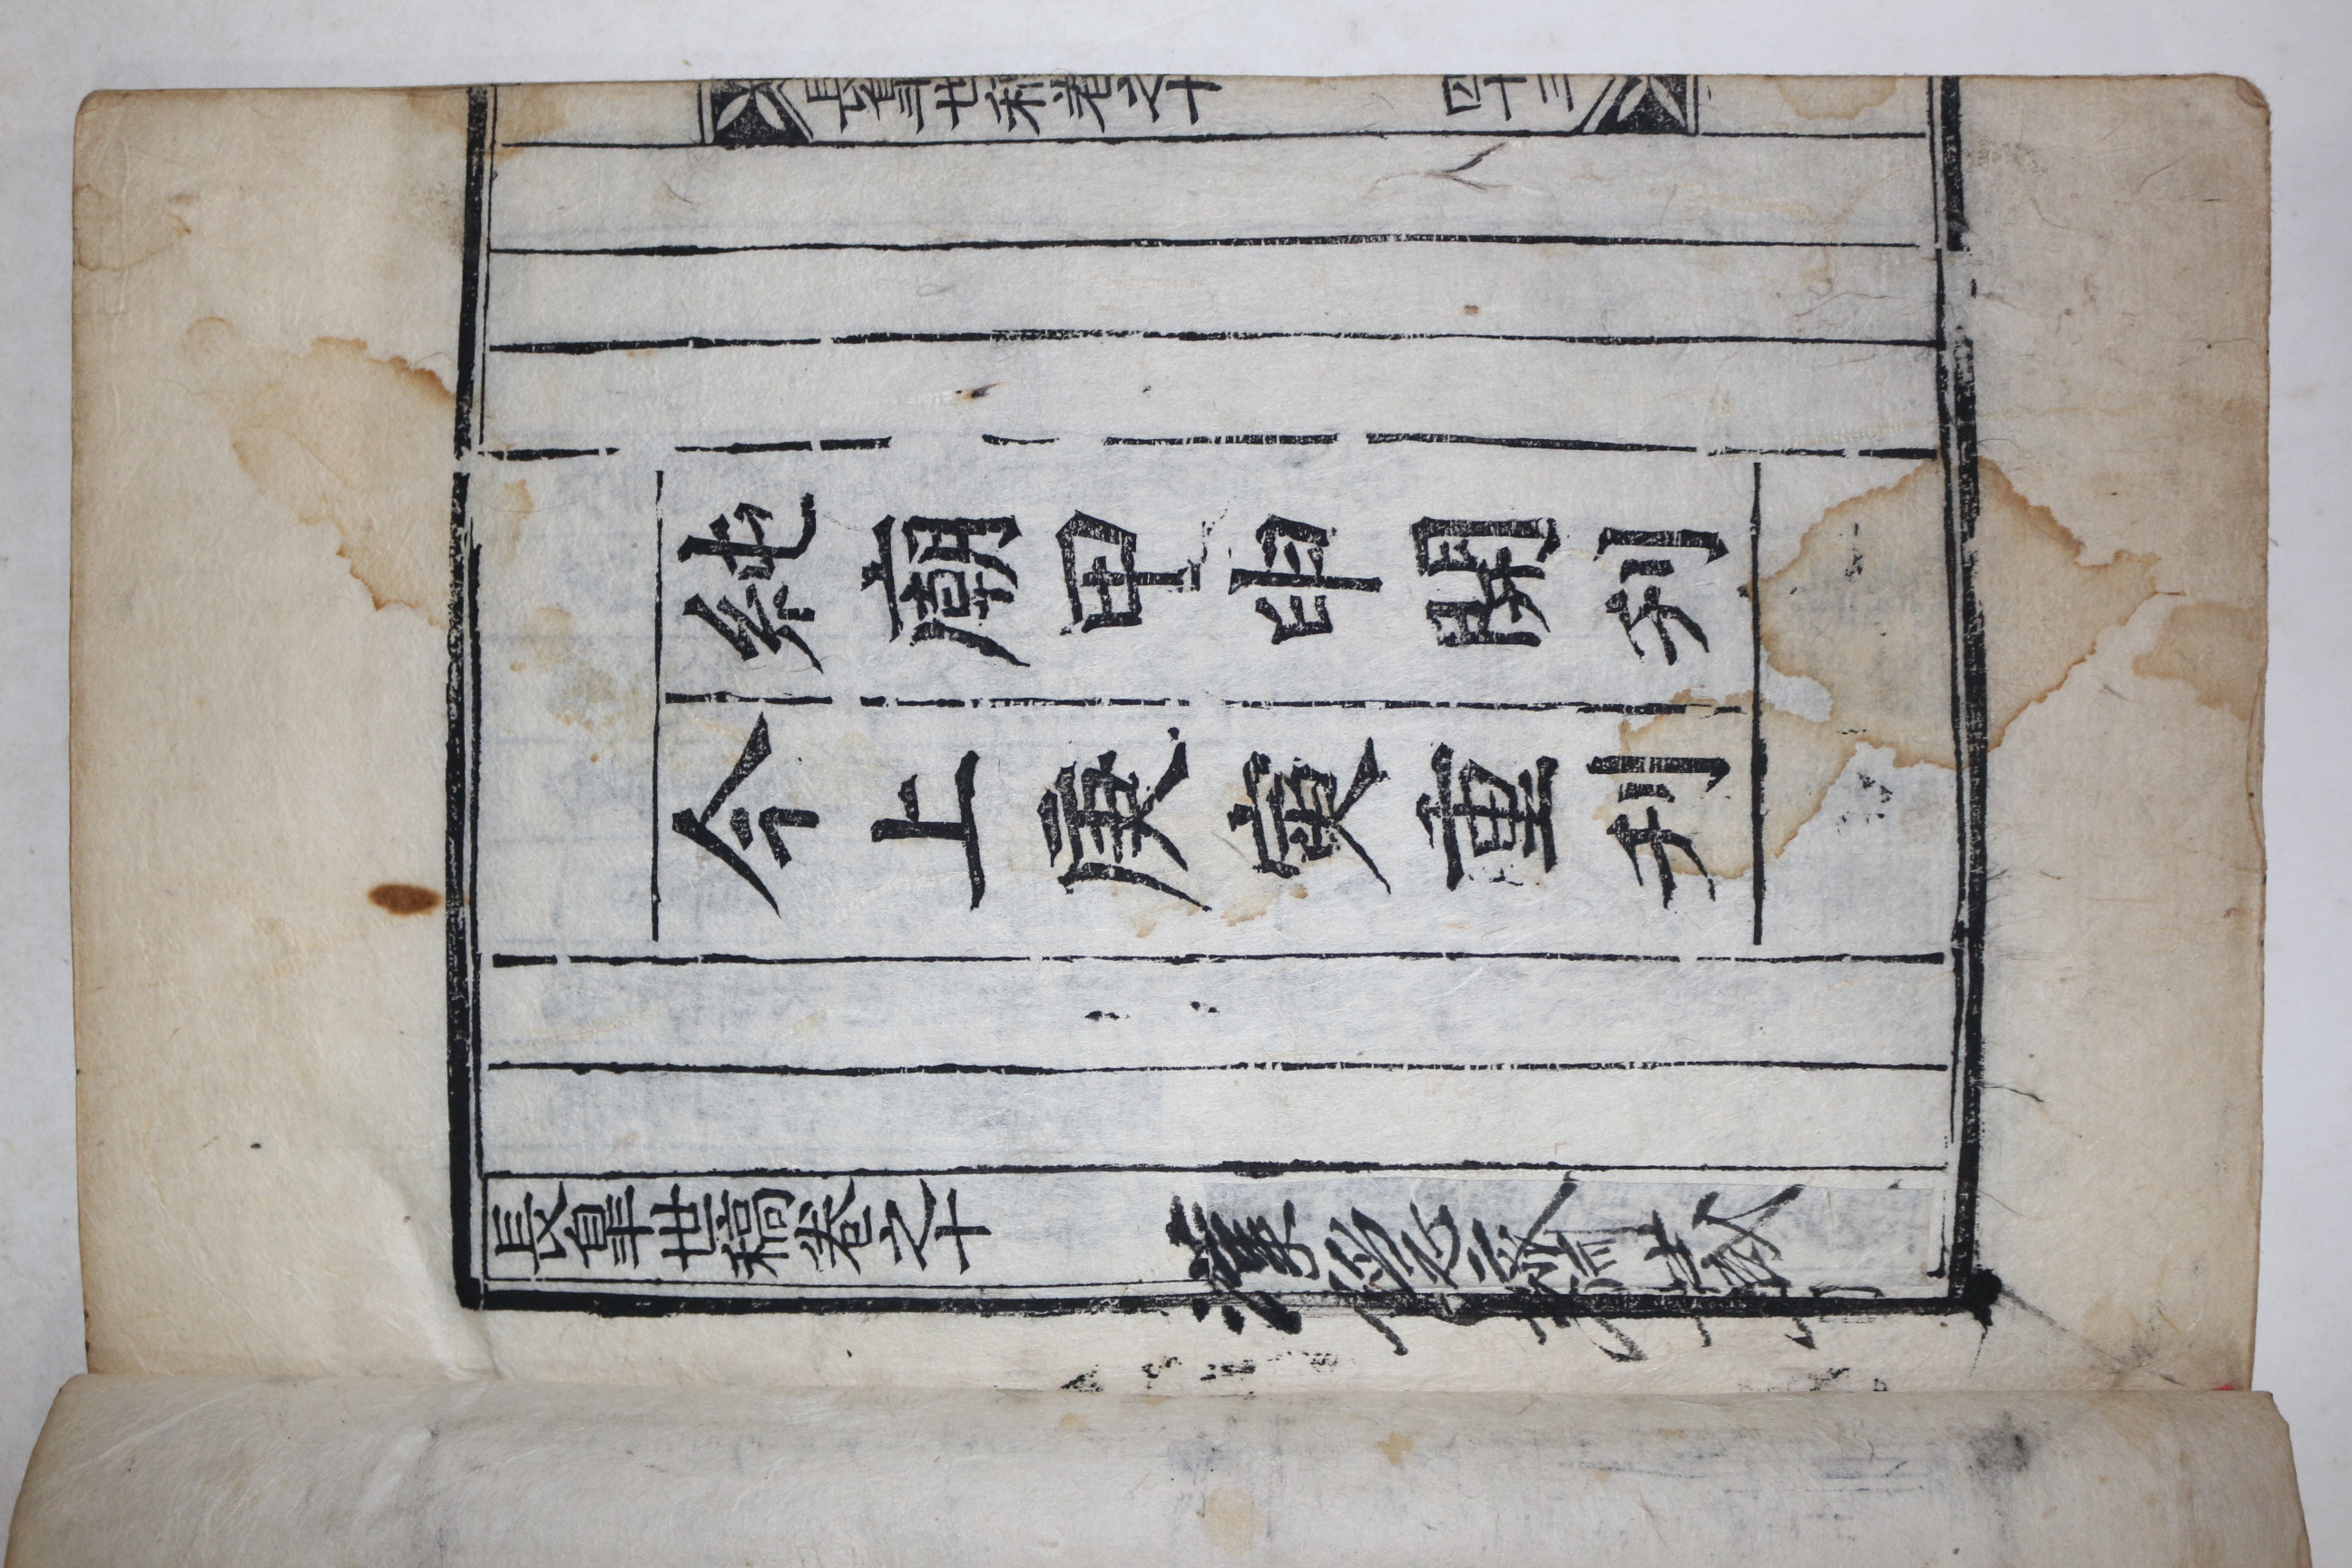 長皐世稿卷之十
四十三
純廟甲申開刋
今上庚寅重刋
長皐世稿卷之十
漢隱齋藏